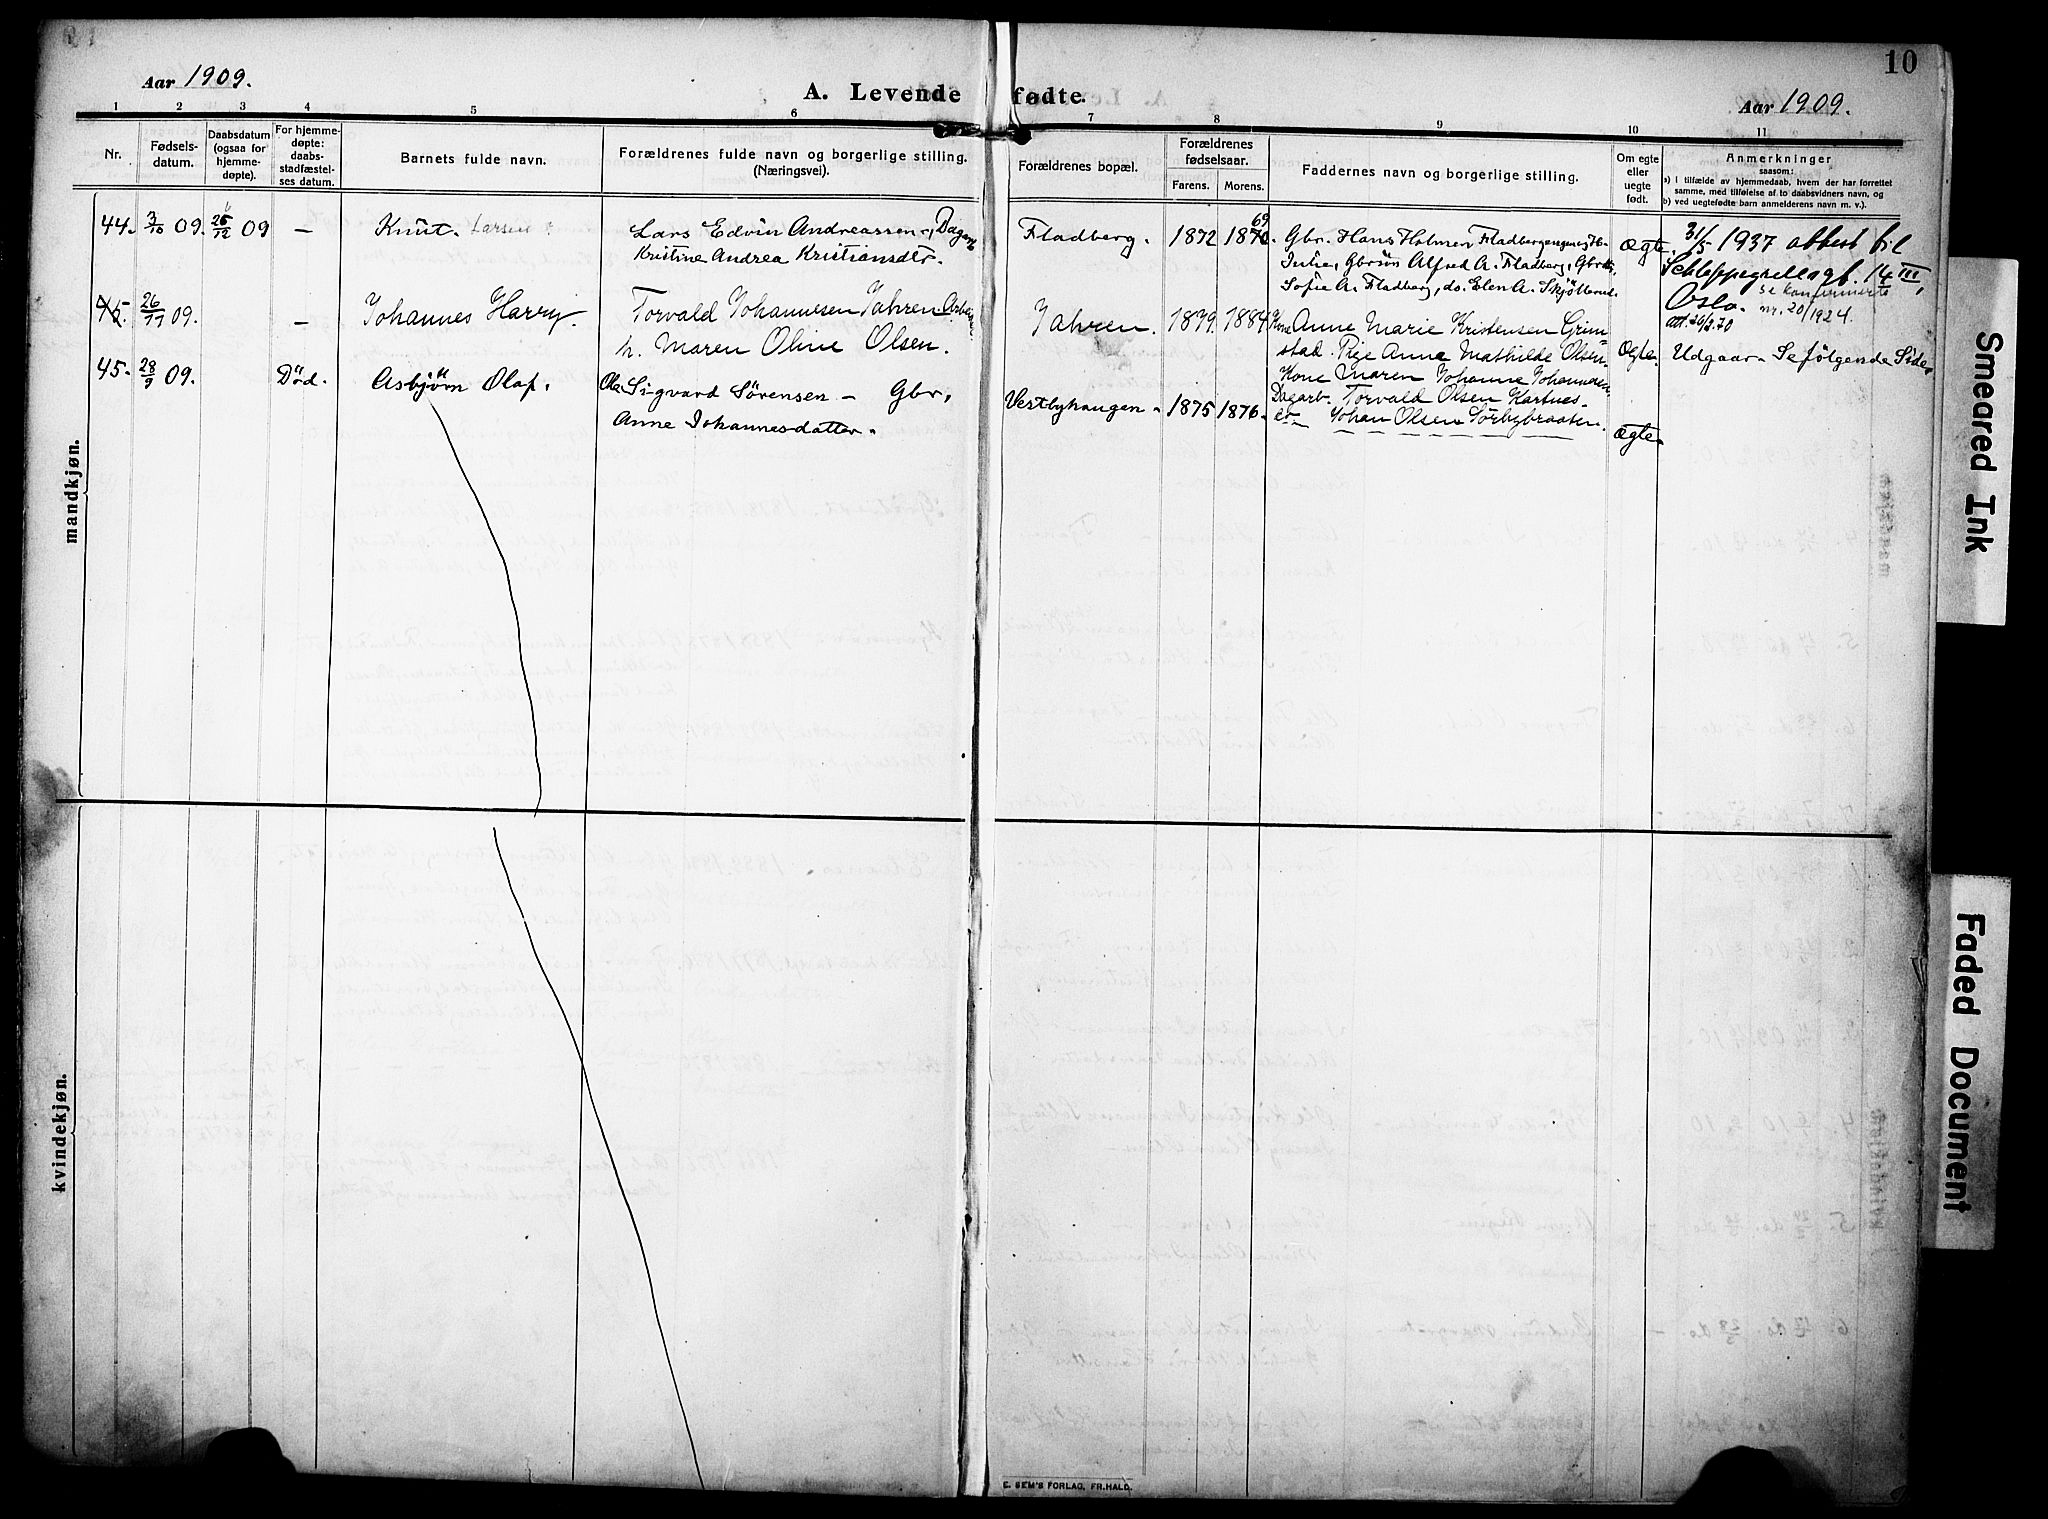 10
Aar 1909.
A. Levende fødte.
Aar 1909.
1 2 3 4 5 6 7 8 9 10 11
Nr.
Fødsels-
datum.
Daabsdatum
(ogsaa for
hjemme-
døpte).
For hjemme-
døpte:
daabs-
stadfæstel-
ses datum.
Barnets fulde navn.
Forældrenes fulde navn og borgerlige stilling.
(Næringsvei).
Forældrenes bopæl.
Forældrenes
fødselsaar.
Farens. Morens.
Faddernes navn og borgerlige stilling.
Om egte
eller
uegte
født.
Anmerkninger
saasom:
a) i tilfælde av hjemmedaab, hvem der har forrettet
samme, med tilføielse af to daabsvidners navn, og
b) ved uegtefødte barn anmelderens navn m. v.).
mandkjøn.
44. 3/10 09. 26/12 09 – Knut. Larsen
Lars Edvin Andreassen, Dagarb.
Kristine Andrea Kristiansdtr.
Fladberg. 1872 1870 69
Gbr. Hans Holmen Fladbergengen, H.
Julie, Gbrsøn Alfred A. Fladberg, Gbrdtr.
Sofie A. Fladberg, do. Elen A. Skjølterud.
Ægte.
31/5 1937 attest til
Schleppegrellsgt. 14 III,
Oslo.
se konfirmerte
nr. 20/1924.
att. 26/2.70
45. 26/11 09. – Johannes Harry.
Torvald Johannesen Jahren. Arbeider
h. Maren Oline Olsen.
Jahren. 1879. 1884.
Kone Anne Marie Kristensen Grim-
stad. Pige Anne Mathilde Olsen.
Kone Maren Johanne Johannesen
Dagarb. Torvald Olsen Kartnes.
do – Johan Olsen Sørbybraaten.
Ægte.
Udgaar. Se følgende Side.
45. 28/9 09. Død. Asbjørn Olaf.
Ole Sigvard Sørensen – Gbr,
Anne Johannesdatter.
Vestbyhaugen. 1875 1876.
Ægte.
kvindekjøn.
E. SEM'S FORLAG, FR.HALD.
Smeared Ink
Faded Document